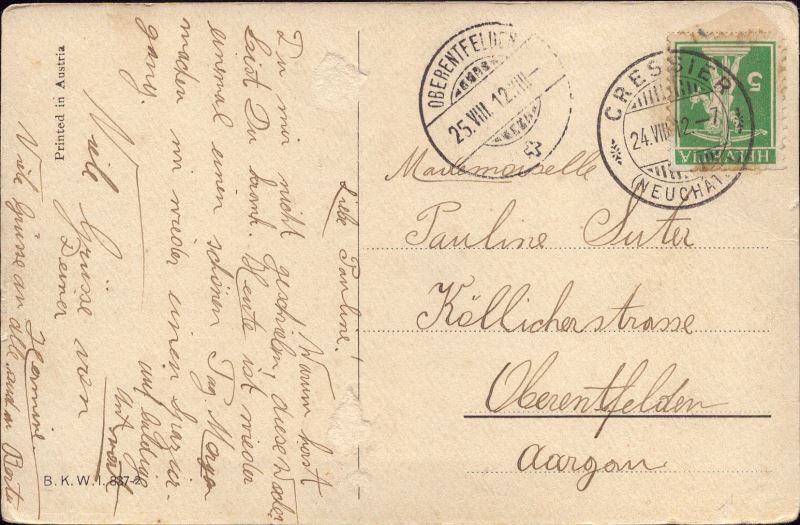 Liebe Pauline!
Warum hast
Du mir nicht geschrieben, diese Woche
bist Du krank. Heute ist wieder
einmal einen schönen Tag. Morgen
machen wir wieder einen Spazier-
gang.
auf baldige
Antwort
Viele Grüsse von
Deiner
Hermine.
Viele Grüsse an alle, auch an Berta
Printed in Austria
B. K. W. I. 887-2
OBERENTFELDEN
25.VIII.12.VIII
CRESSIER
24.VIII.12.-1
(NEUCHAT.)
5
HELVETIA
Mademoiselle
Pauline Suter
Köllicherstrasse
Oberentfelden
Aargau